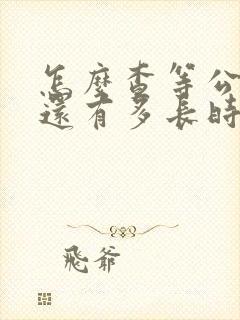 怎麼查等公
還有多長時
飛爺